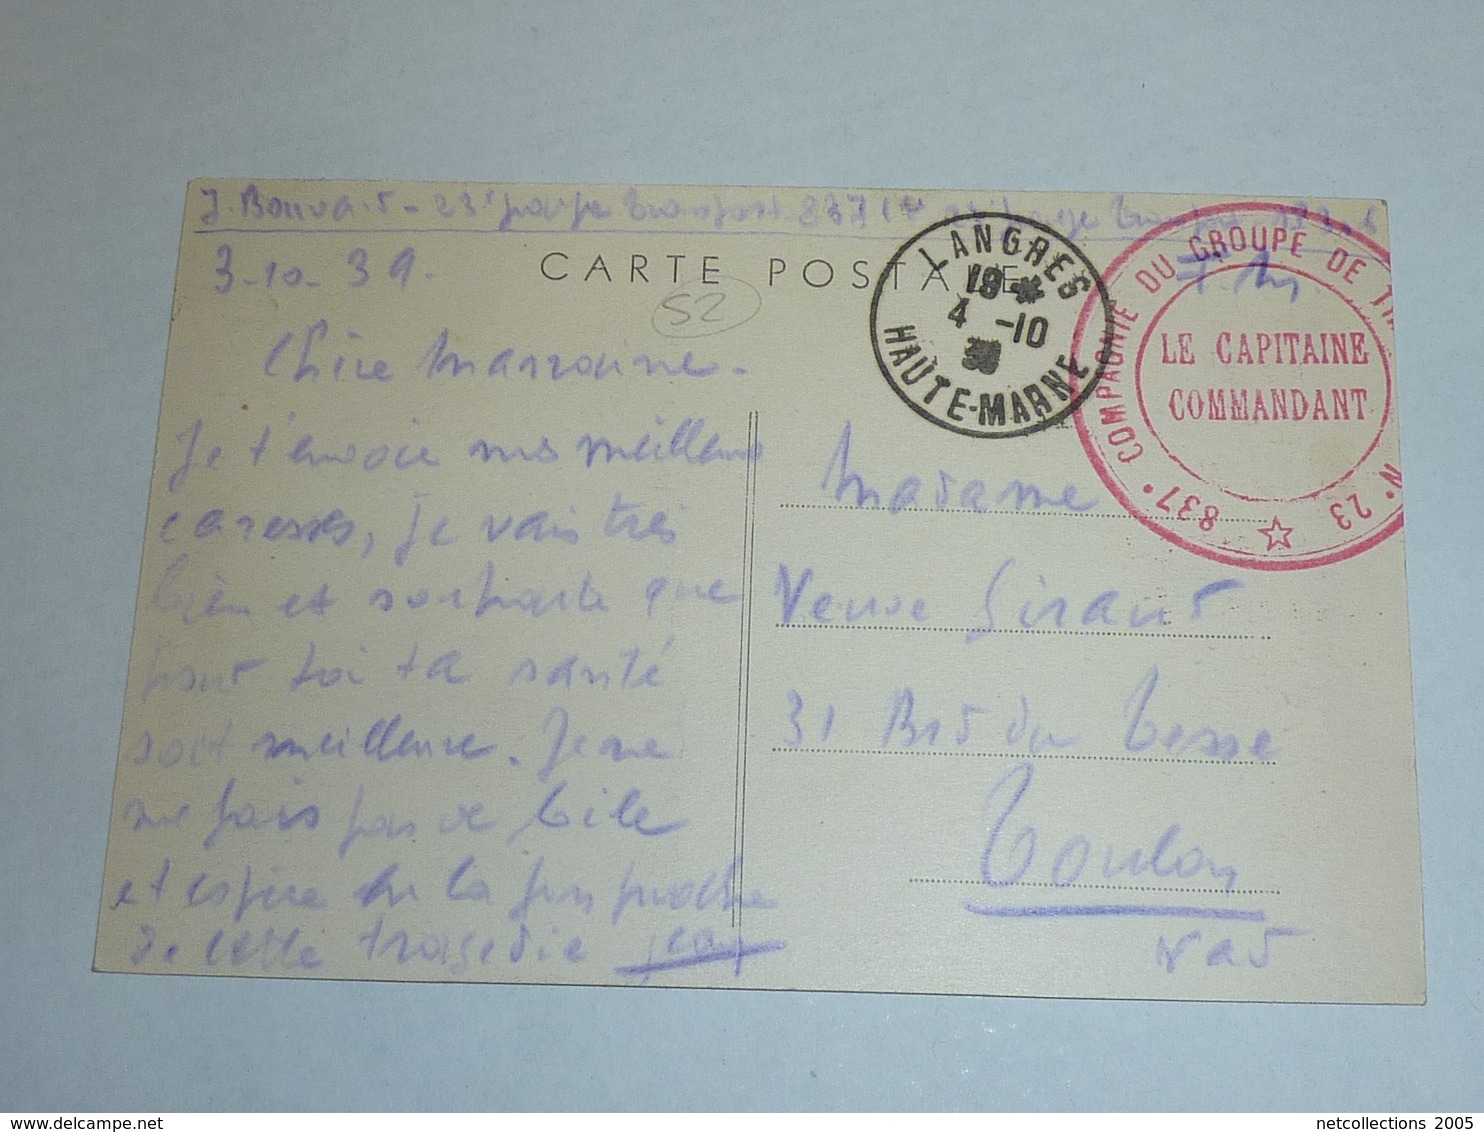 J. Bouvart - 23e groupe transport 837
3-10-39.
F. M.
CARTE POSTALE
52
LANGRES
19 *
4 -10
HAUTE-MARNE
837e COMPAGNIE DU GROUPE DE
N° 23
LE CAPITAINE
COMMANDANT
Chère Marraine -
Je t'envoie mes meilleures
caresses, je vais très
bien et souhaite que
pour toi ta santé
soit meilleure. Je ne
me fais pas de bile
et espère en la fin proche
de cette tragédie Jean
Madame
Veuve Giraud
31 Bld du Tessé
Toulon
Var
netcollections 2005